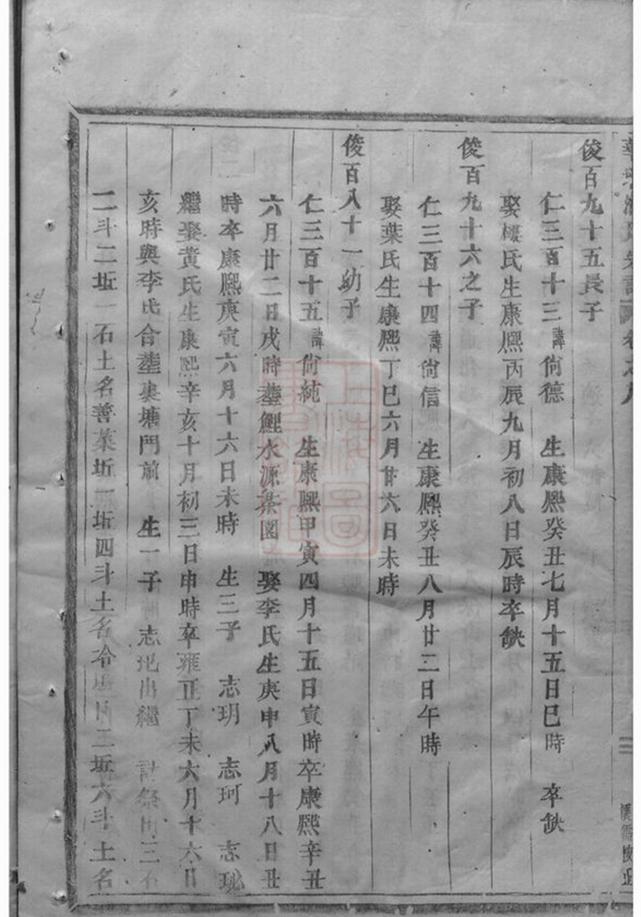 俊百九十五長子
仁三百十三諱尙德 生康熙癸丑七月十五日巳時 卒缺
娶樓氏生康熙丙辰九月初八日辰時卒缺
俊百九十六之子
仁三百十四諱尙信 生康熙癸丑八月廿二日午時
娶葉氏生康熙丁巳六月廿六日未時
俊百八十一幼子
仁三百十五諱尙純 生康熙甲寅四月十五日寅時卒康熙辛丑
六月廿二日戌時塟鯉水源茶園 娶李氏生庚申八月十八日丑
時卒康熙庚寅六月十六日未時 生三子 志玥 志珂 志
繼娶黃氏生康熙辛亥十月初三日申時卒雍正丁未六月十六日
亥時與李氏合塟裏塘門前 生一子 志 出繼 祭田三石
二斗二坵一石土名善葉坵一坵四斗土名冷 二坵六斗土名